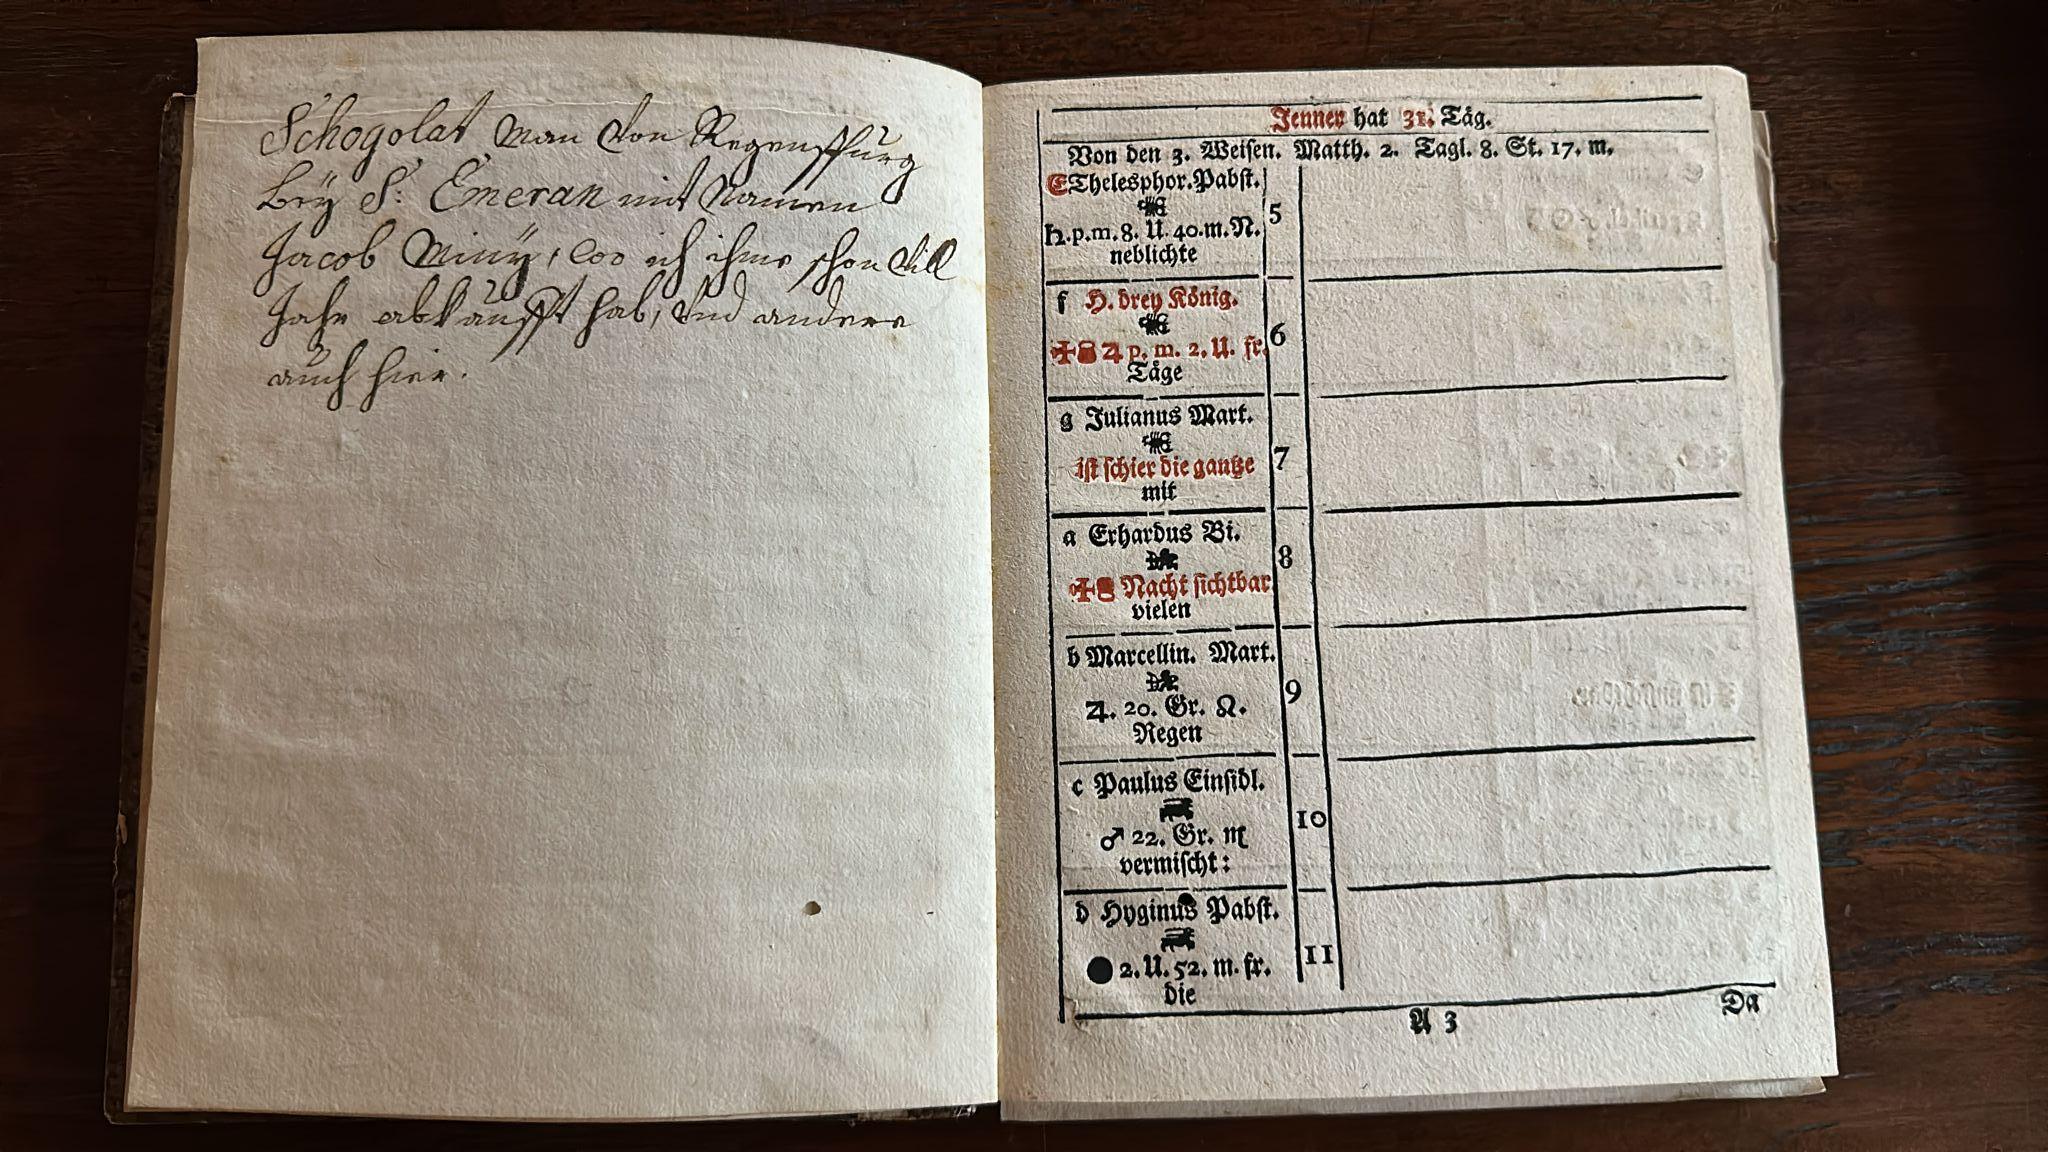 Schogolat Man von Regenspurg
beÿ S: Emeran mit namen
Jacob Minÿ, wo ich ihme schon vill
Jahr abkaufft hab, und andere
auch hier.
Jenner hat 31. Täg.
Von den 3. Weisen. Matth. 2. Tagl. 8. St. 17. m.
E Thelesphor. Pabst.
5
♄. p. m. 8. U. 40. m. N.
neblichte
f H. drey König.
6
♃ p. m. 2. U. fr.
Täge
g Julianus Mart.
ist schier die gantze
7
mit
a Erhardus Bi.
8
Nacht sichtbar
vielen
b Marcellin. Mart.
9
♃. 20. Gr. ♌.
Regen
c Paulus Einsidl.
10
♂ 22. Gr. ♏
vermischt:
d Hyginus Pabst.
11
● 2. U. 52. m. fr.
die
A 3
Da